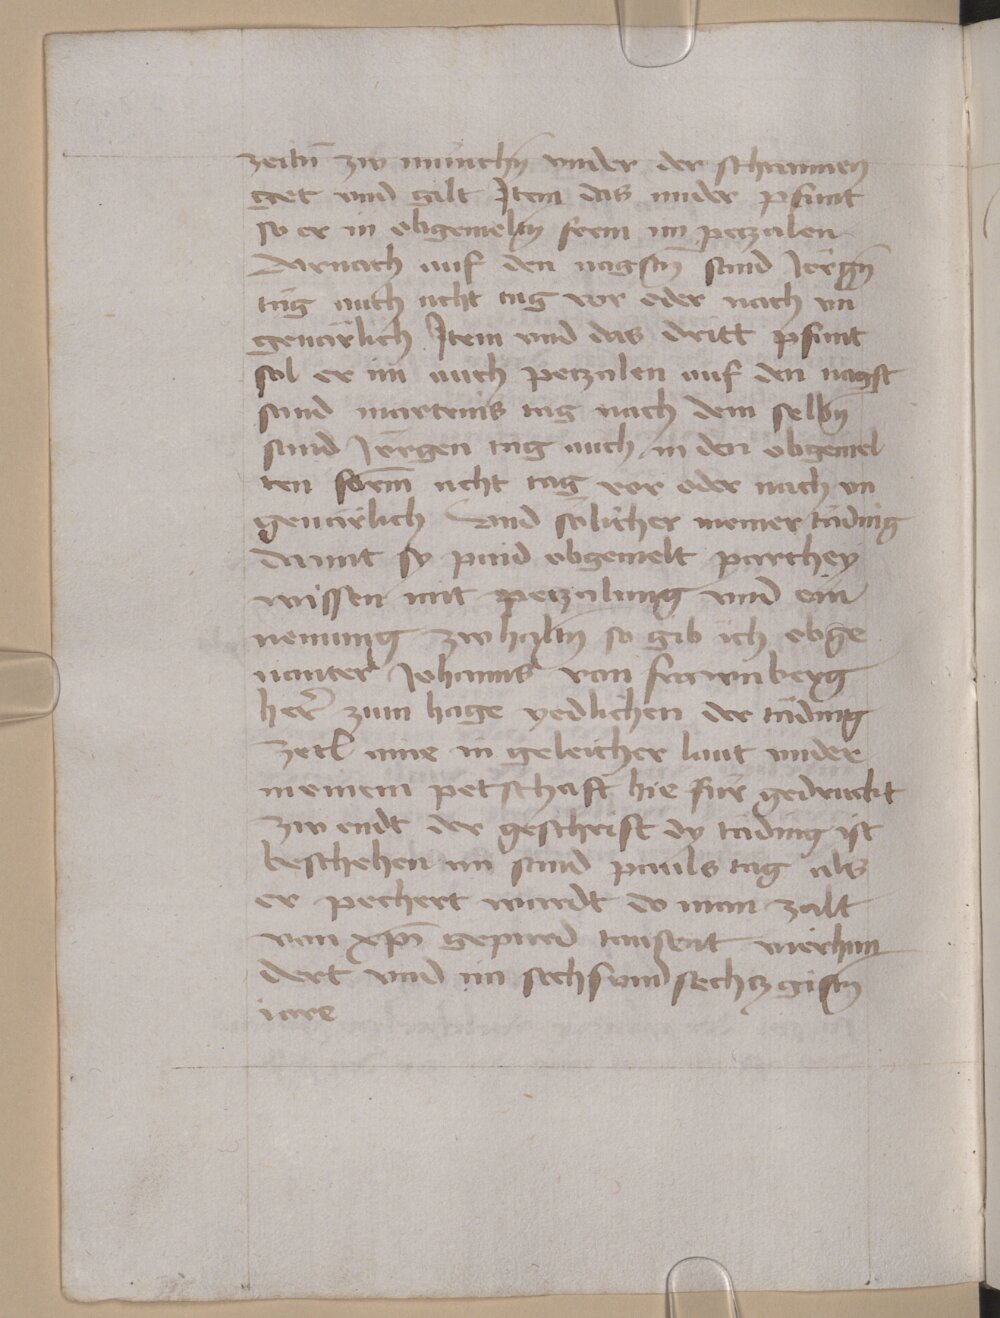 zeitn̄ zw münichn̄ vnder der schrannen
get vnd gilt Item das ander pfunt
so er in obgemeltn̄ form im petzalen
Darnach auf den nagstn̄ sand Jörgn̄
tag auch acht tag vor oder nach vn
geuärlich Item vnd das dritt pfunt
sol er im auch petzalen auf den nagst
sand marteins tag nach dem selbn̄
sand Jörgen tag auch in den obgemel
ten form acht tag vor oder nach vn
geuärlich Vnd solicher meiner täding
damit sy paid obgemelt parthey
wissen mit petzalung vnd ein
nemung zw haltn̄ so gib ich obge
nanter Johanns von frawnberg
her̄ zum hage yedlichen der täding
zetl aine in geleicher laut vnder
meinem petschaft hie für gedruckt
zw endt der geschrift dy täding ist
beschehen an sand pauls tag als
er pechert wardt do man zalt
von xp̄i gepurd tausent vierhun
dert vnd im sechsvnd sechtzgistn̄
iare